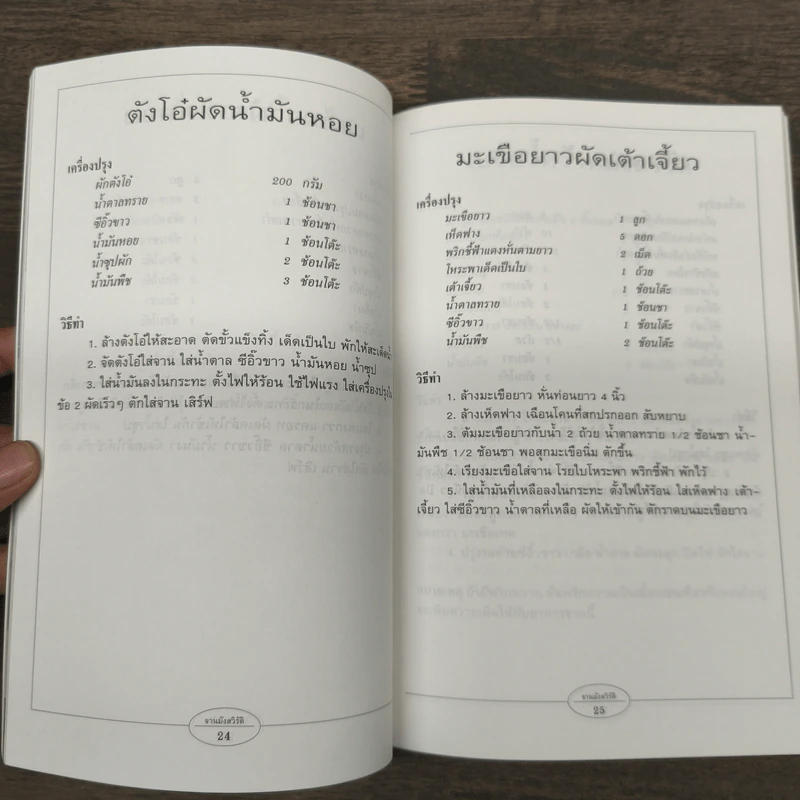 ตังโอ๋ผัดน้ำมันหอย
เครื่องปรุง
ผักตังโอ๋ 200 กรัม
น้ำตาลทราย 1 ช้อนชา
ซีอิ๊วขาว 1 ช้อนชา
น้ำมันหอย 1 ช้อนโต๊ะ
น้ำซุปผัก 2 ช้อนโต๊ะ
น้ำมันพืช 3 ช้อนโต๊ะ
วิธีทำ
1. ล้างตังโอ๋ให้สะอาด ตัดขั้วแข็งทิ้ง เด็ดเป็นใบ พักให้สะเด็ดน้ำ
2. จัดตังโอ๋ใส่จาน ใส่น้ำตาล ซีอิ๊วขาว น้ำมันหอย น้ำซุป
3. ใส่น้ำมันลงในกระทะ ตั้งไฟให้ร้อน ใช้ไฟแรง ใส่เครื่องปรุงใน
ข้อ 2 ผัดเร็วๆ ตักใส่จาน เสิร์ฟ
จานมังสวิรัติ
24
มะเขือยาวผัดเต้าเจี้ยว
เครื่องปรุง
มะเขือยาว 1 ลูก
เห็ดฟาง 5 ดอก
พริกชี้ฟ้าแดงหั่นตามยาว 2 เม็ด
โหระพาเด็ดเป็นใบ 1 ถ้วย
เต้าเจี้ยว 1 ช้อนโต๊ะ
น้ำตาลทราย 1 ช้อนชา
ซีอิ๊วขาว 1 ช้อนโต๊ะ
น้ำมันพืช 2 ช้อนโต๊ะ
วิธีทำ
1. ล้างมะเขือยาว หั่นท่อนยาว 4 นิ้ว
2. ล้างเห็ดฟาง เฉือนโคนที่สกปรกออก สับหยาบ
3. ต้มมะเขือยาวกับน้ำ 2 ถ้วย น้ำตาลทราย 1/2 ช้อนชา น้ำ-
มันพืช 1/2 ช้อนชา พอสุกมะเขือนิ่ม ตักขึ้น
4. เรียงมะเขือใส่จาน โรยใบโหระพา พริกชี้ฟ้า พักไว้
5. ใส่น้ำมันที่เหลือลงในกระทะ ตั้งไฟให้ร้อน ใส่เห็ดฟาง เต้า-
เจี้ยว ใส่ซีอิ๊วขาว น้ำตาลที่เหลือ ผัดให้เข้ากัน ตักราดบนมะเขือยาว
จานมังสวิรัติ
25